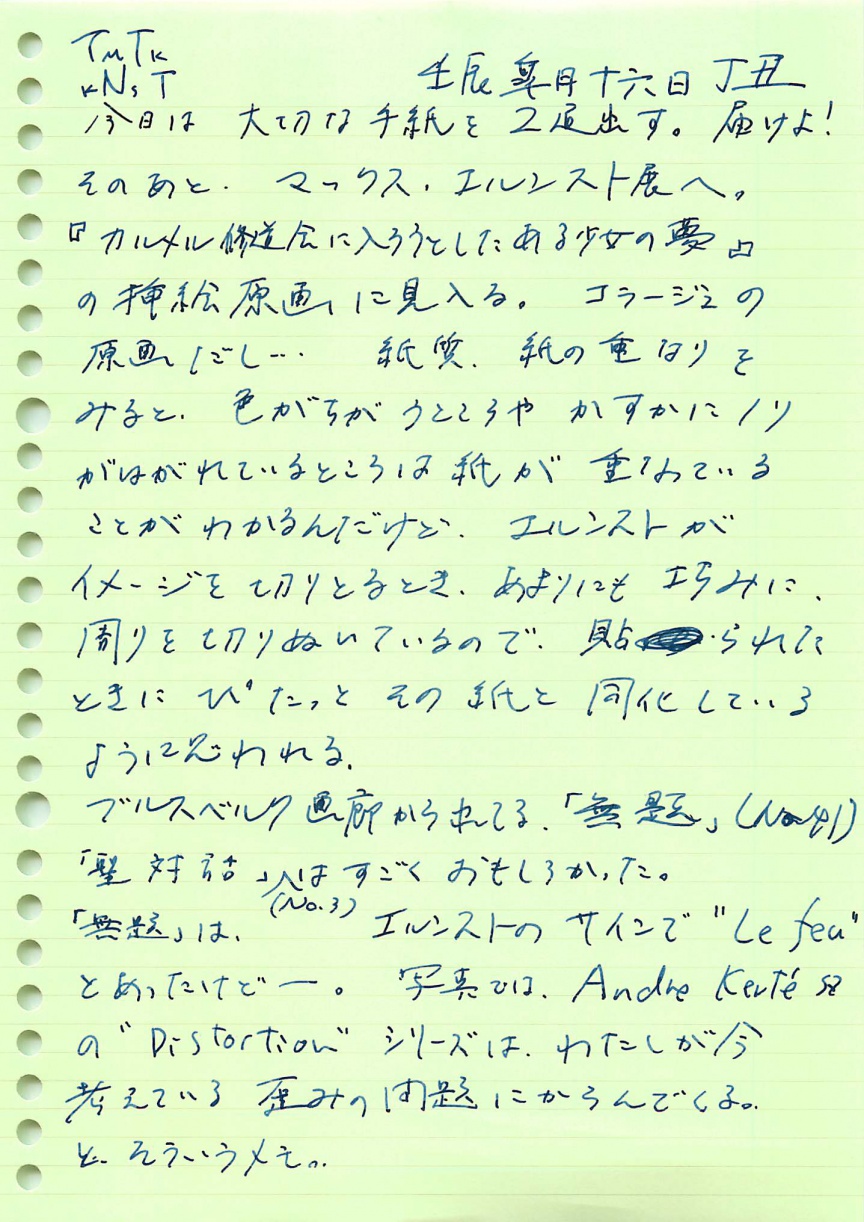 TMTK
KNST
壬辰 皐月十六日 丁丑
今日は 大切な手紙を 2通出す。届けよ!
そのあと、マックス・エルンスト展へ。
『カルメル修道会に入ろうとしたある少女の夢』
の挿絵原画に見入る。コラージュの
原画だし… 紙質、紙の重なりを
みると、色がちがうところや かすかにノリ
がはがれているところは紙が 重なっている
ことが わかるんだけど、エルンストが
イメージを切りとるとき、あまりにも 巧みに、
周りを切りぬいているので、貼られた
ときに ぴたっと その紙と 同化している
ように思われる。
ブルスベルク画廊から来てる、「無題」(No.41)
「聖対話」(No.3)はすごく おもしろかった。
「無題」は、エルンストの サインで "Le feu"
とあったけどー。写真では、Andre Kertész
の "Distortion" シリーズは、わたしが今
考えている 歪みの問題にからんでくる。
と、そういうメモ。